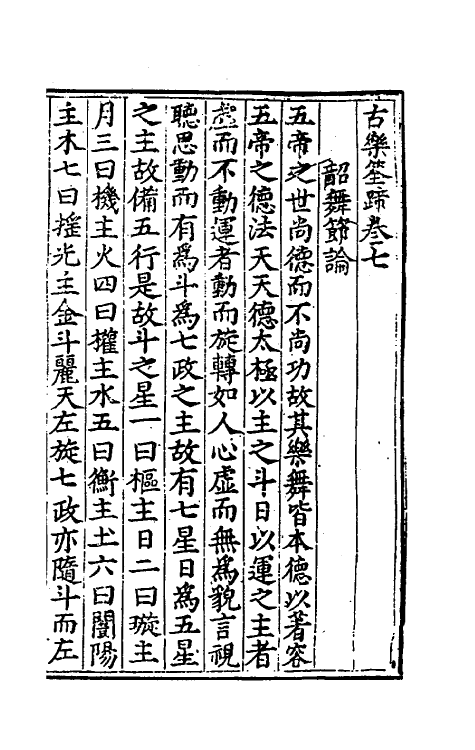 古樂筌蹄卷七
韶舞節論
五帝之世尚德而不尚功故其樂舞皆本德以著容
五帝之德法天天德太極以主之斗日以運之主者
虛而不動運者動而旋轉如人心虛而無為貌言視
聽思動而有為斗為七政之主故有七星日為五星
之主故備五行是故斗之星一曰樞主日二曰璇主
月三曰機主火四曰權主水五曰衡主土六曰闓陽
主木七曰搖光主金斗麗天左旋七政亦隨斗而左